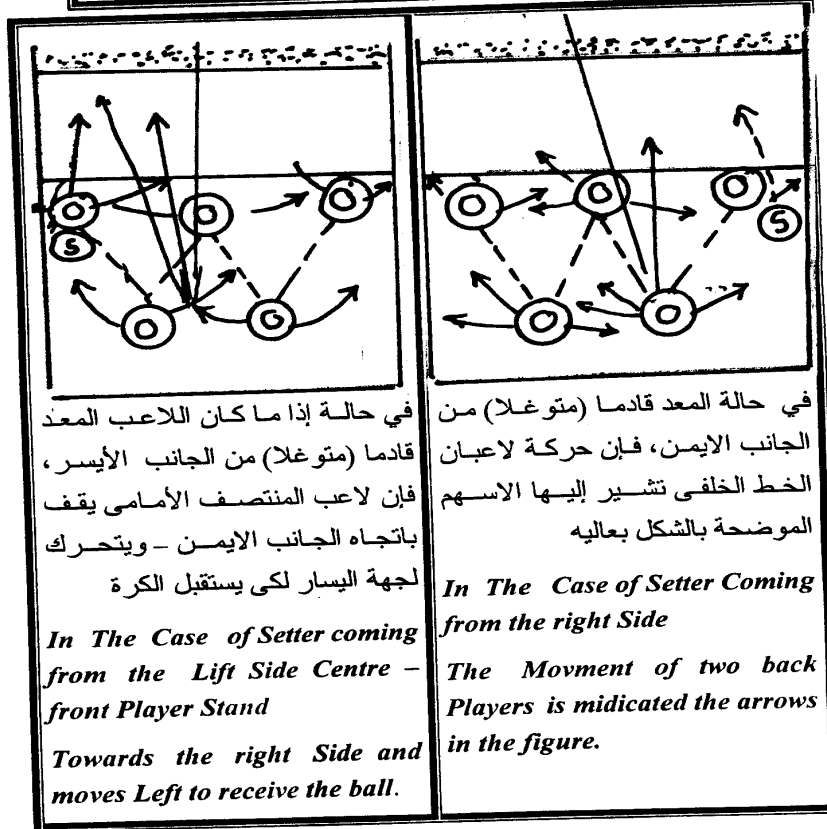 S
O
O
O
O
O
في حالـة إذا مـا كـان اللاعـب المعـد
قادمـا (متوغـلا) مـن الجانـب الأيسـر،
فإن لاعب المنتصـف الأمـامى يقـف
باتجـاه الجانـب الايمـن – ويتحـرك
لجهة اليسار لكى يستقبل الكرة
In The Case of Setter coming
from the Lift Side Centre –
front Player Stand
Towards the right Side and
moves Left to receive the ball.
O
O
O
S
O
O
في حالة المعد قادمـا (متوغـلا) مـن
الجانب الايمـن، فـإن حركـة لاعبـان
الخـط الخلفـى تشـير إليـها الاسـهم
الموضحة بالشكل بعاليه
In The Case of Setter Coming
from the right Side
The Movment of two back
Players is midicated the arrows
in the figure.